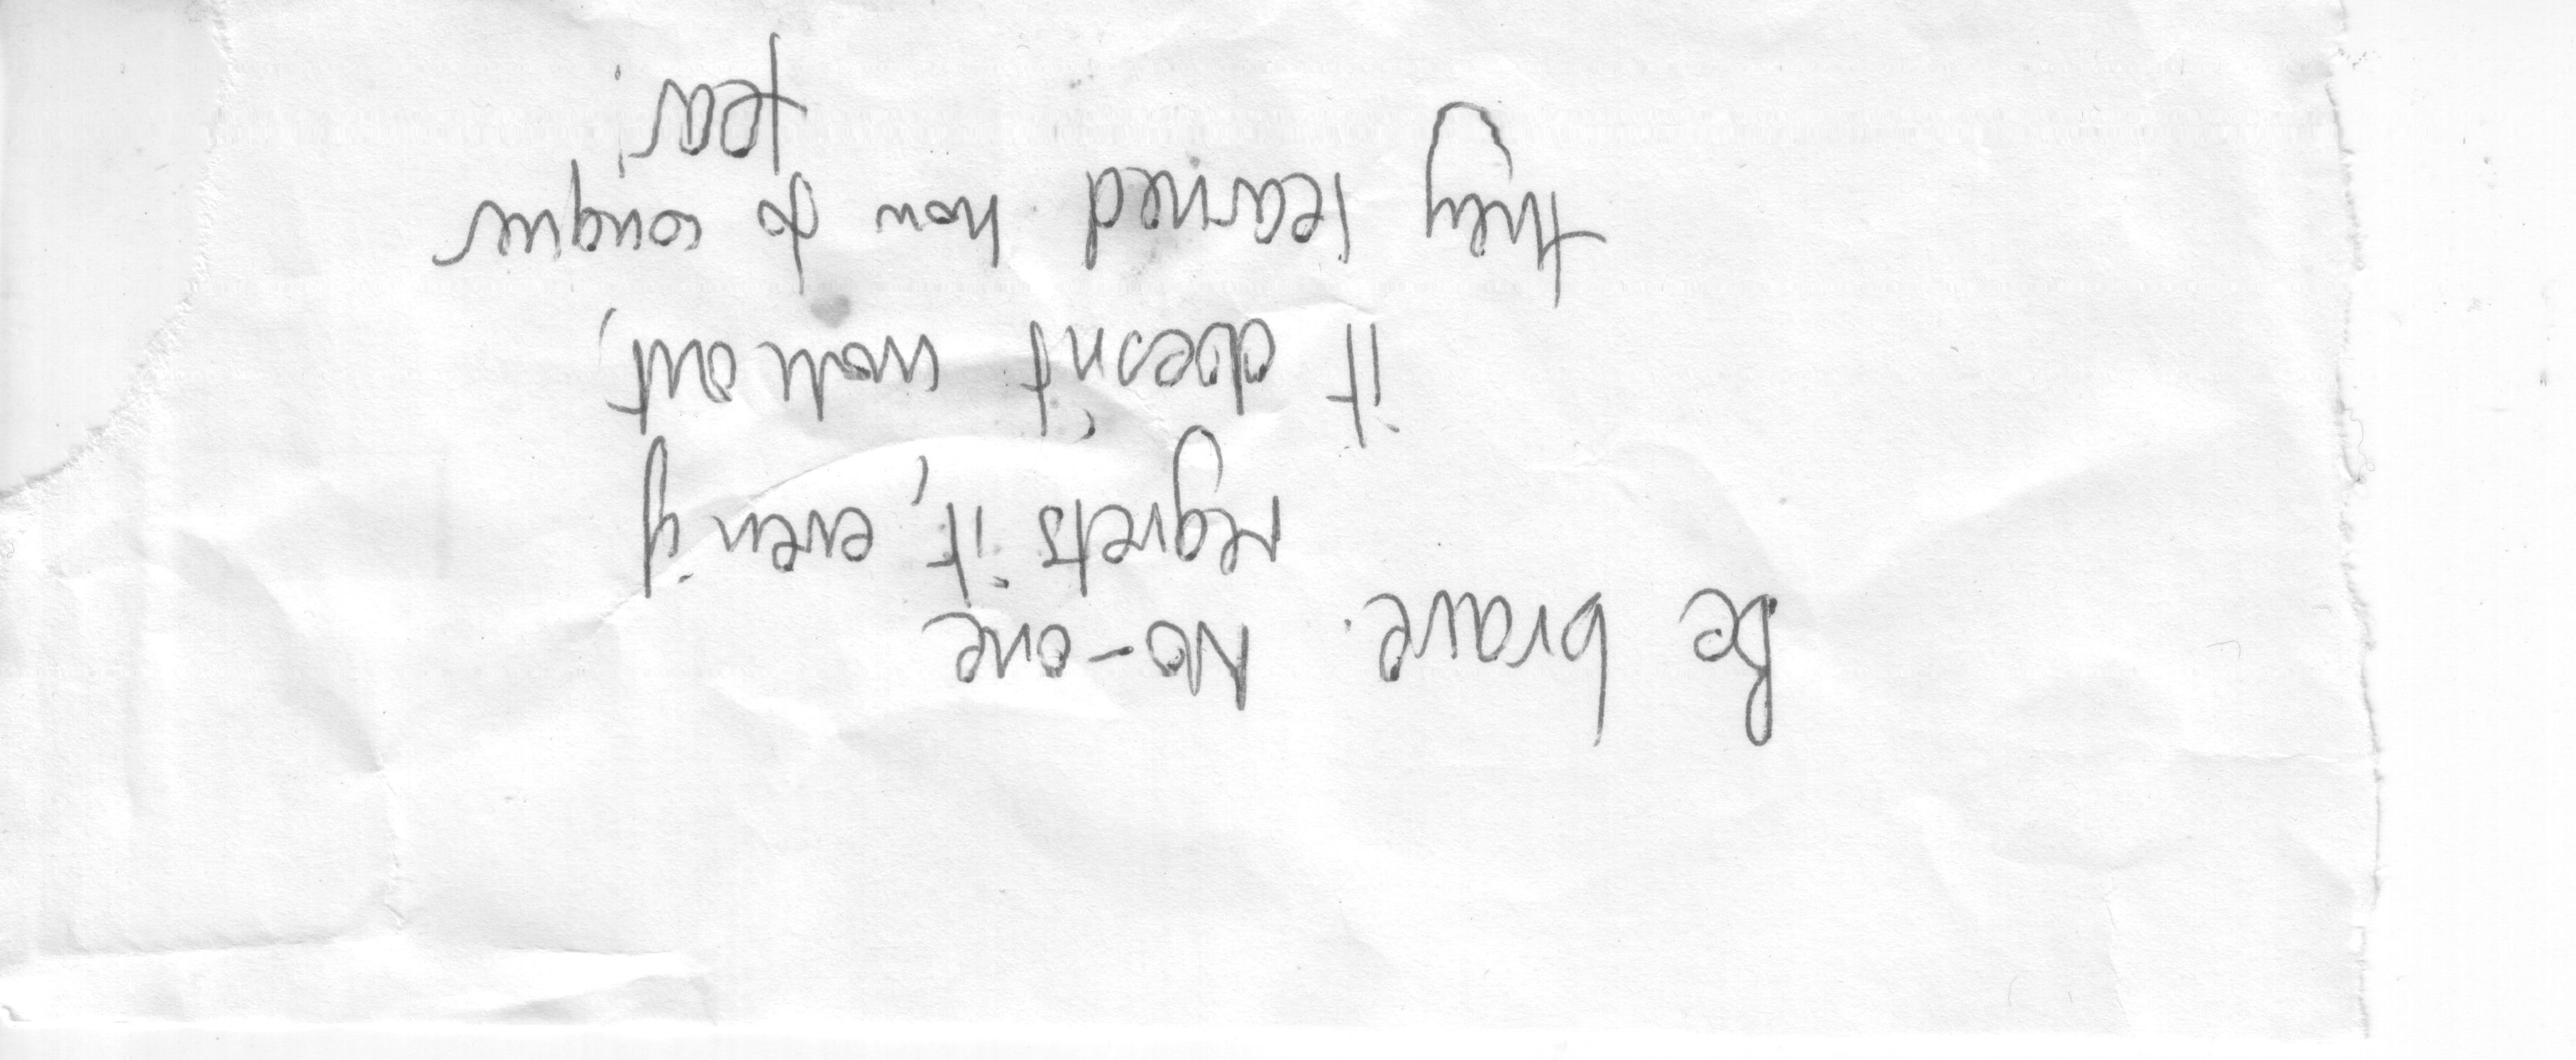 Be brave. No-one
regrets it, even if
it doesn't work out,
they learned how to conquer
fear.